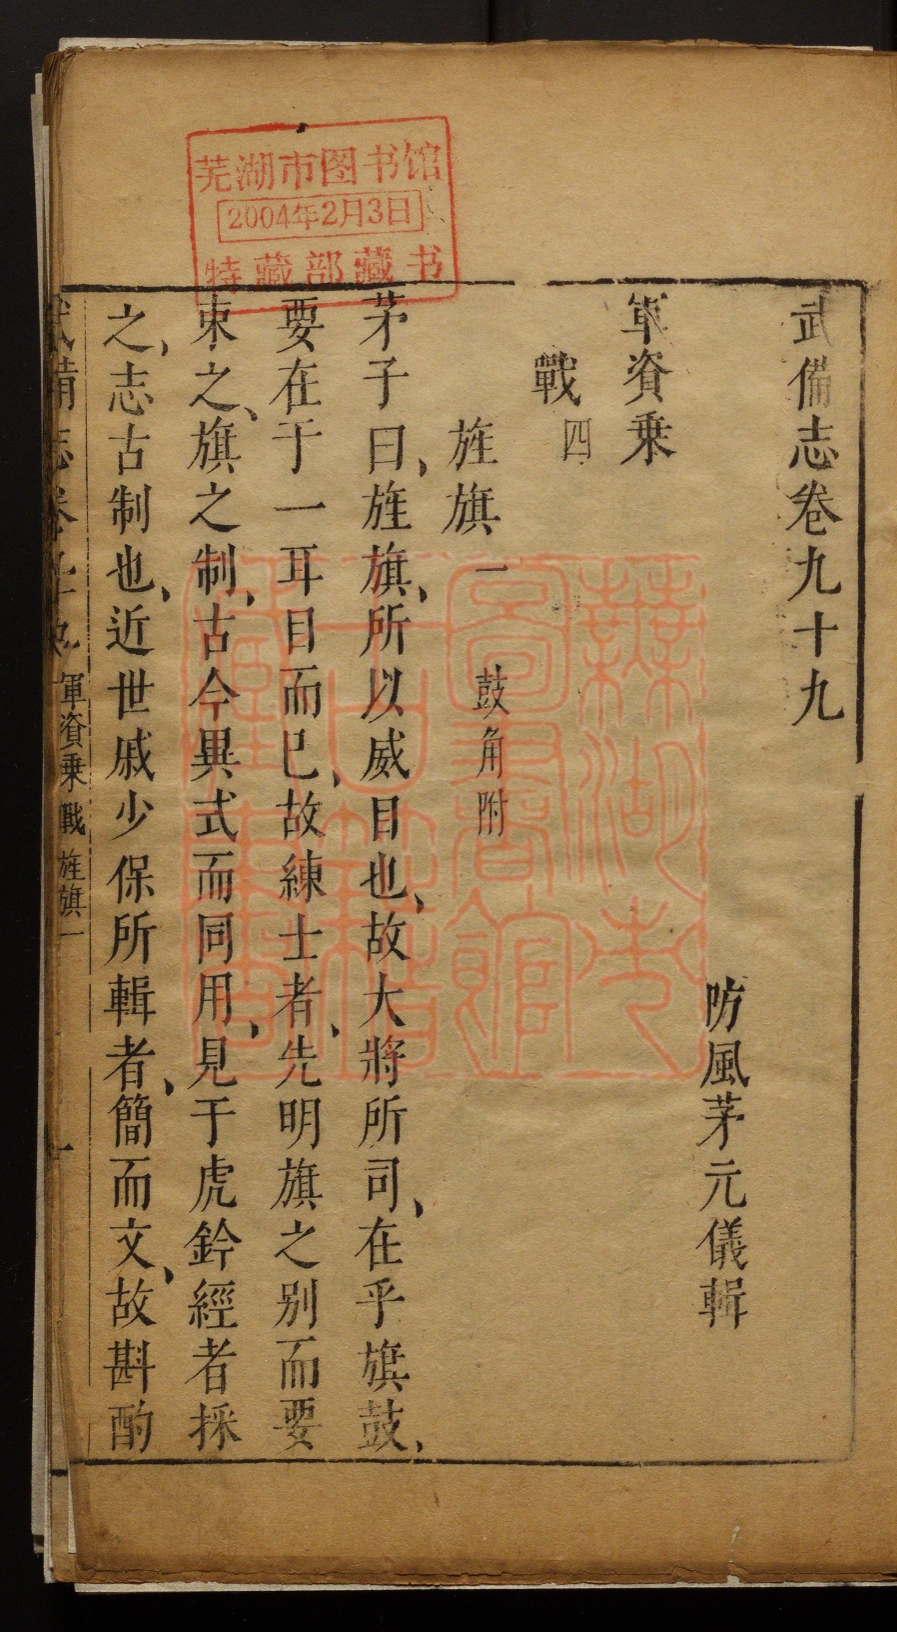 芜湖市图书馆
2004年2月3日
特藏部藏书
武備志卷九十九
防風茅元儀輯
軍資乗
戰四
旌旗一 鼓角附
茅子曰、旌旗、所以威目也、故大將所司、在乎旗鼓、
要在于一耳目而已、故練士者、先明旗之别而要
束之、旗之制、古今異式而同用、見于虎鈐經者採
之、志古制也、近世戚少保所輯者、簡而文、故斟酌
武備志卷九十九 軍資乗 戰 旌旗一 一
蕪湖市
圖書館
古籍
藏書